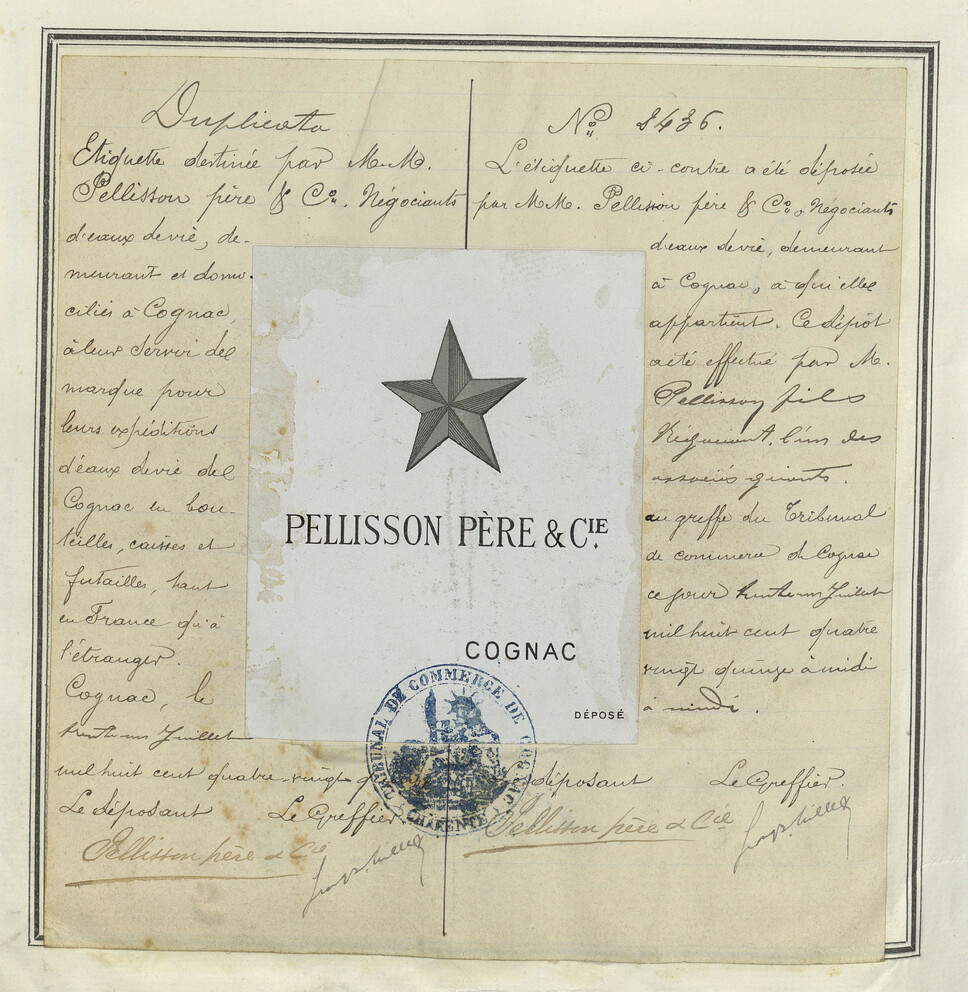 Duplicata
Etiquette destinée par M.M.
Pellisson père & Co. Négociants
d'eaux de vie, de-
meurant et domi-
ciliés à Cognac,
à leur servir de
marque pour
leurs expéditions
d'eaux de vie de
Cognac en bou-
teilles, caisses et
futailles, tant
en France qu'à
l'étranger.
Cognac, le
trente un Juillet
mil huit cent quatre-vingt q
Le déposant Le Greffier
Pellisson père & Cie
No 8436.
L'étiquette ci-contre a été déposée
par M.M. Pellisson père & Co, Négociants
d'eaux de vie, demeurant
à Cognac, à qui elle
appartient. Ce dépôt
a été effectué par M.
Pellisson fils
Négociant, l'un des
associés gérants.
au greffe du Tribunal
de commerce de Cognac
ce jour trente un Juillet
mil huit cent quatre
vingt quinze à midi
à midi.
déposant Le Greffier.
Pellisson père & Cie
PELLISSON PÈRE & CIE.
COGNAC
DÉPOSÉ
TRIBUNAL DE COMMERCE DE COGNAC
CHARENTE